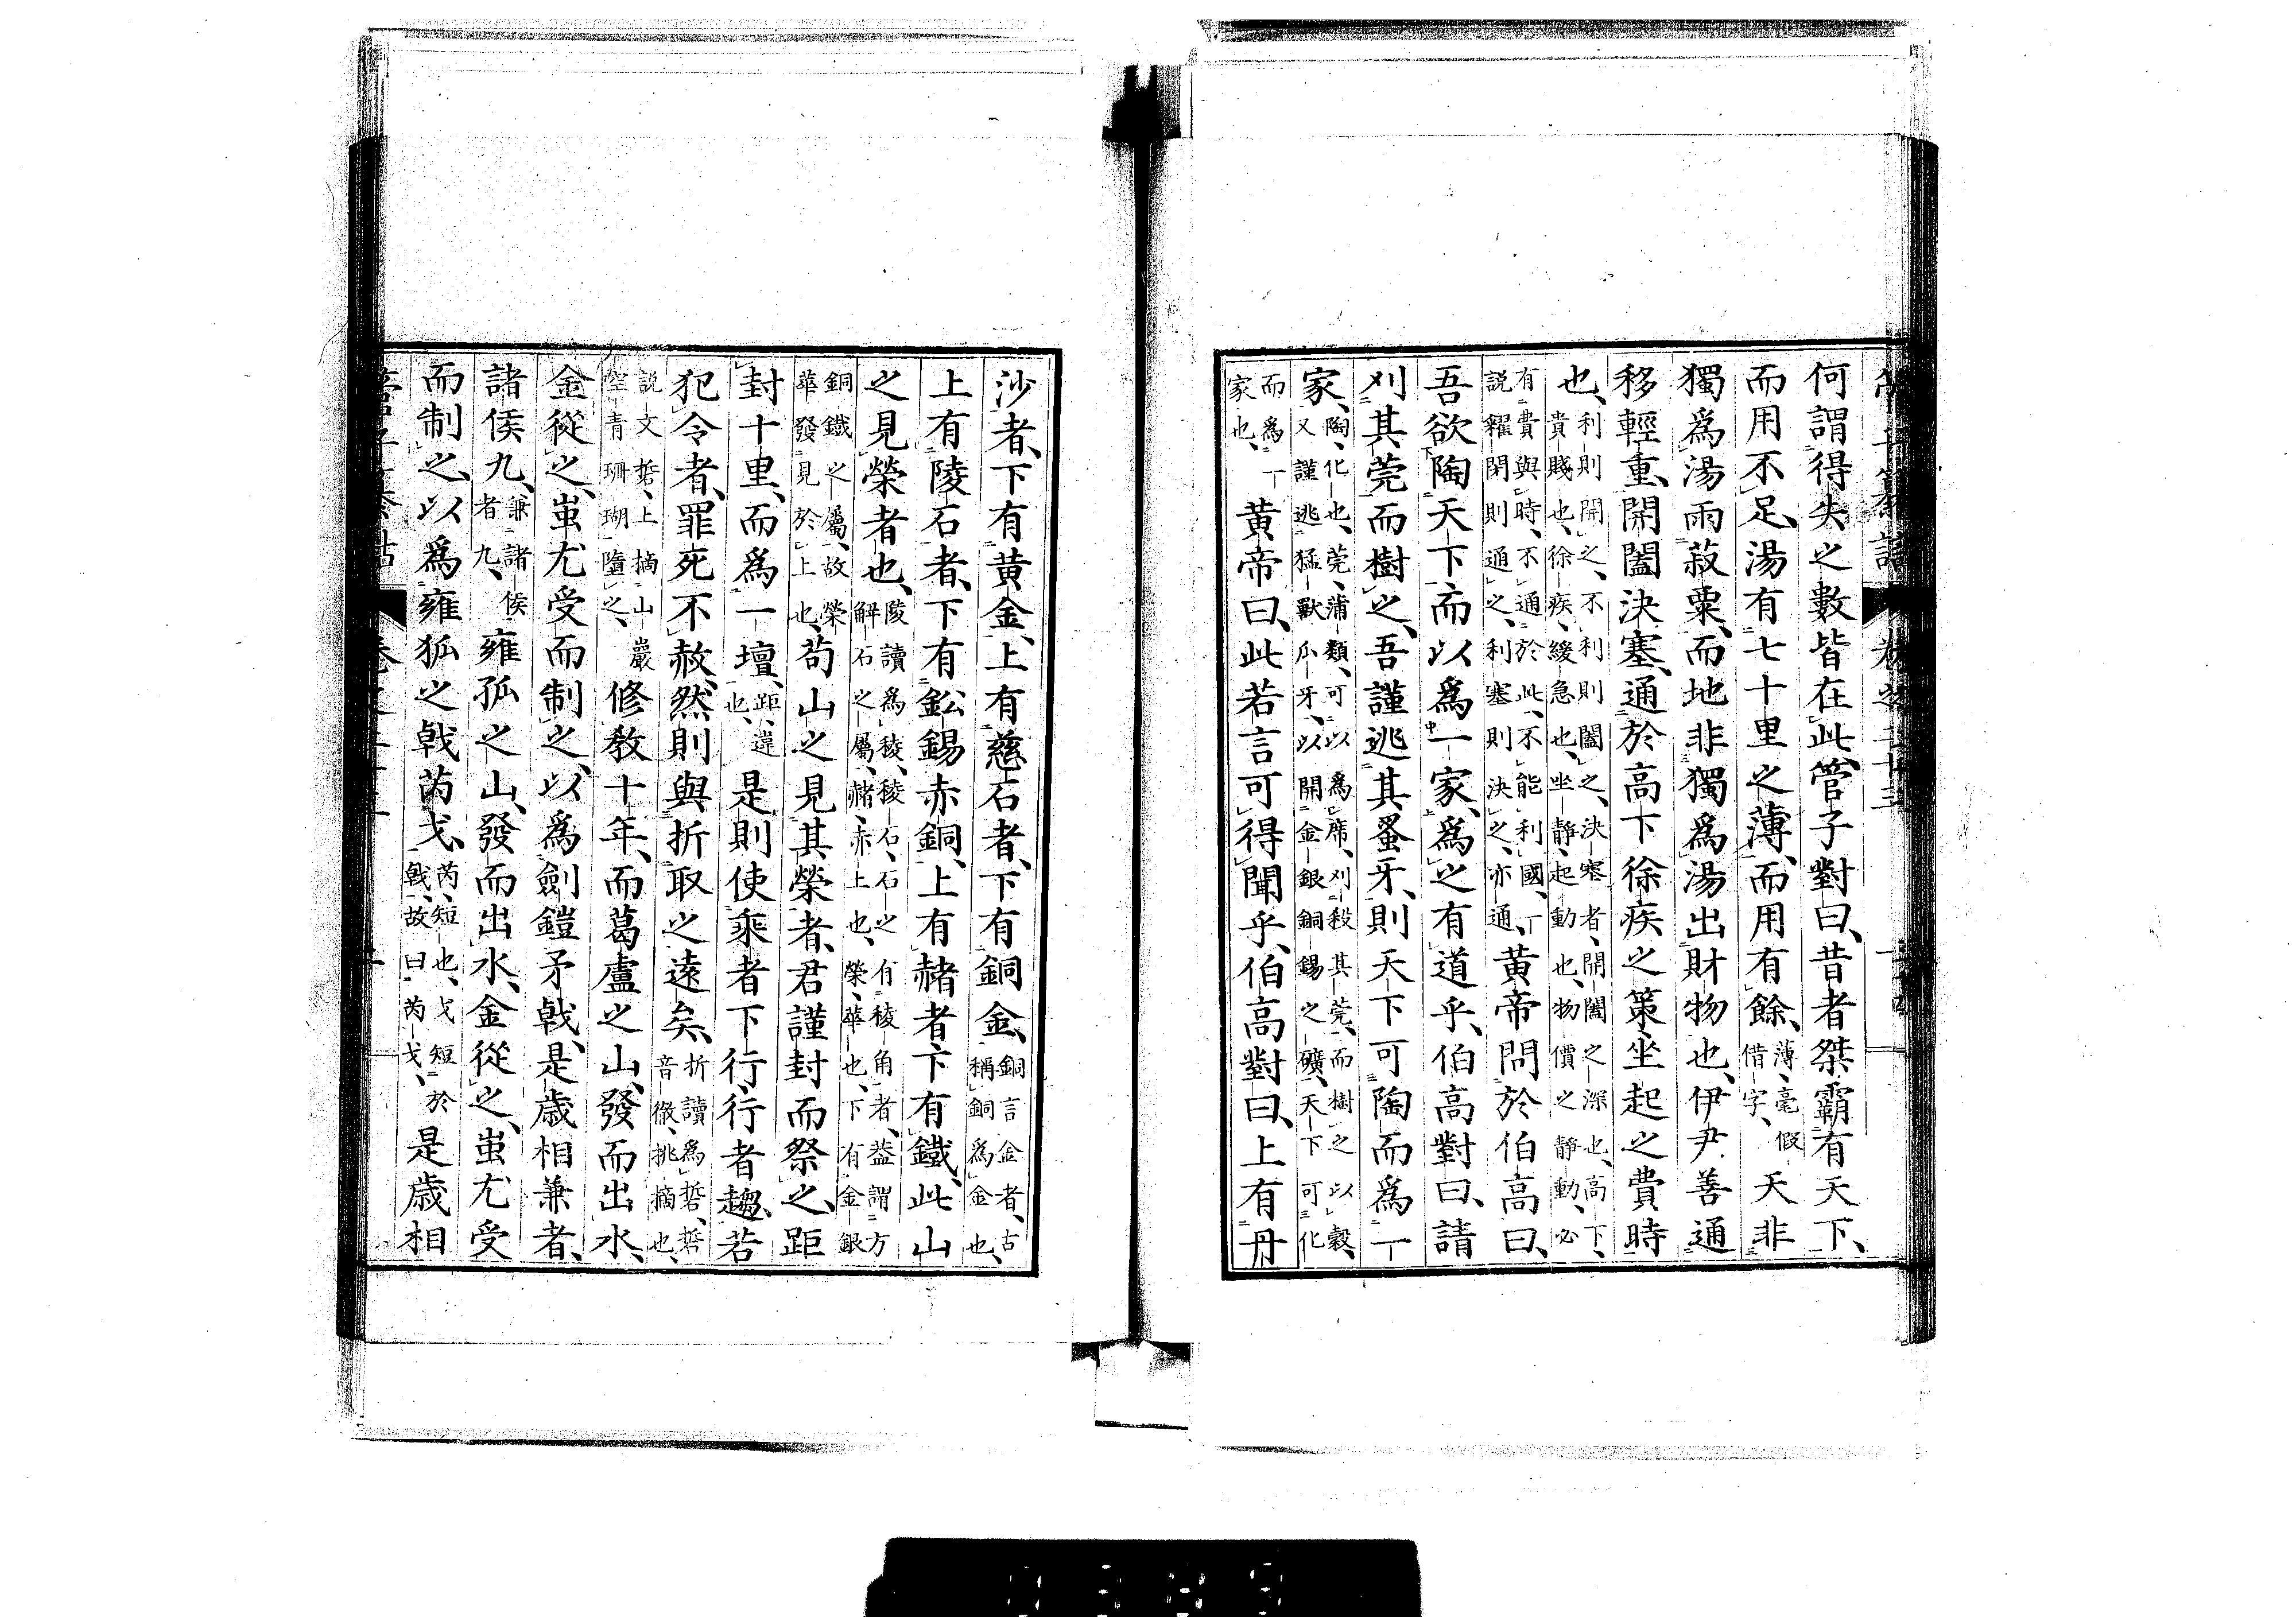 何謂得失之數皆在此、管子對曰、昔者桀霸有天下、
而用不足、湯有七十里之薄、而用有餘、薄、毫假借字、天非
獨爲湯雨菽粟、而地非獨爲湯出財物也、伊尹善通
移輕重、開闔決塞、通於高下徐疾之策、坐起之費時
也、利則開之、不利則闔之、決塞者、開闔之深也、高下、貴賤也、徐疾、緩急也、坐靜、起動也、物價之靜動、必
有費與時、不通於此、不能利國、一說糶閉則通之、利塞則決之、亦通、黄帝問於伯高曰、
吾欲陶天下、而以爲一家、爲之有道乎、伯高對曰、請
刈其莞而樹之、吾謹逃其蚤牙、則天下可陶而爲一
家、陶、化也、莞、蒲類、可以爲席、刈殺其莞、而樹之以穀、又謹逃猛獸爪牙、以開金銀銅錫之礦、天下可化
而爲一家也、黄帝曰、此若言可得聞乎、伯高對曰、上有丹
沙者、下有黄金、上有慈石者、下有銅金、銅言金者、古稱銅爲金也、
上有陵石者、下有鈆錫赤銅、上有赭者、下有鐵、此山
之見榮者也、陵讀爲稜、稜石、石之有稜角者、葢謂方解石之屬、赭、赤土也、榮、華也、下有金銀
銅鐵之屬、故榮華發見於上也、苟山之見其榮者、君謹封而祭之、距
封十里、而爲一壇、距、違也、是則使乘者下行、行者趨、若
犯令者、罪死不赦、然則與折取之遠矣、折讀爲硩、硩音徹、挑摘也、
說文硩、上摘山巖空青珊瑚墮之、修教十年、而葛盧之山、發而出水、
金從之、蚩尤受而制之、以爲劍鎧矛戟、是歲相兼者、
諸侯九、兼諸侯者九、雍狐之山、發而出水、金從之、蚩尤受
而制之、以爲雍狐之戟芮戈、芮、短也、戈短於戟、故曰芮戈、是歲相